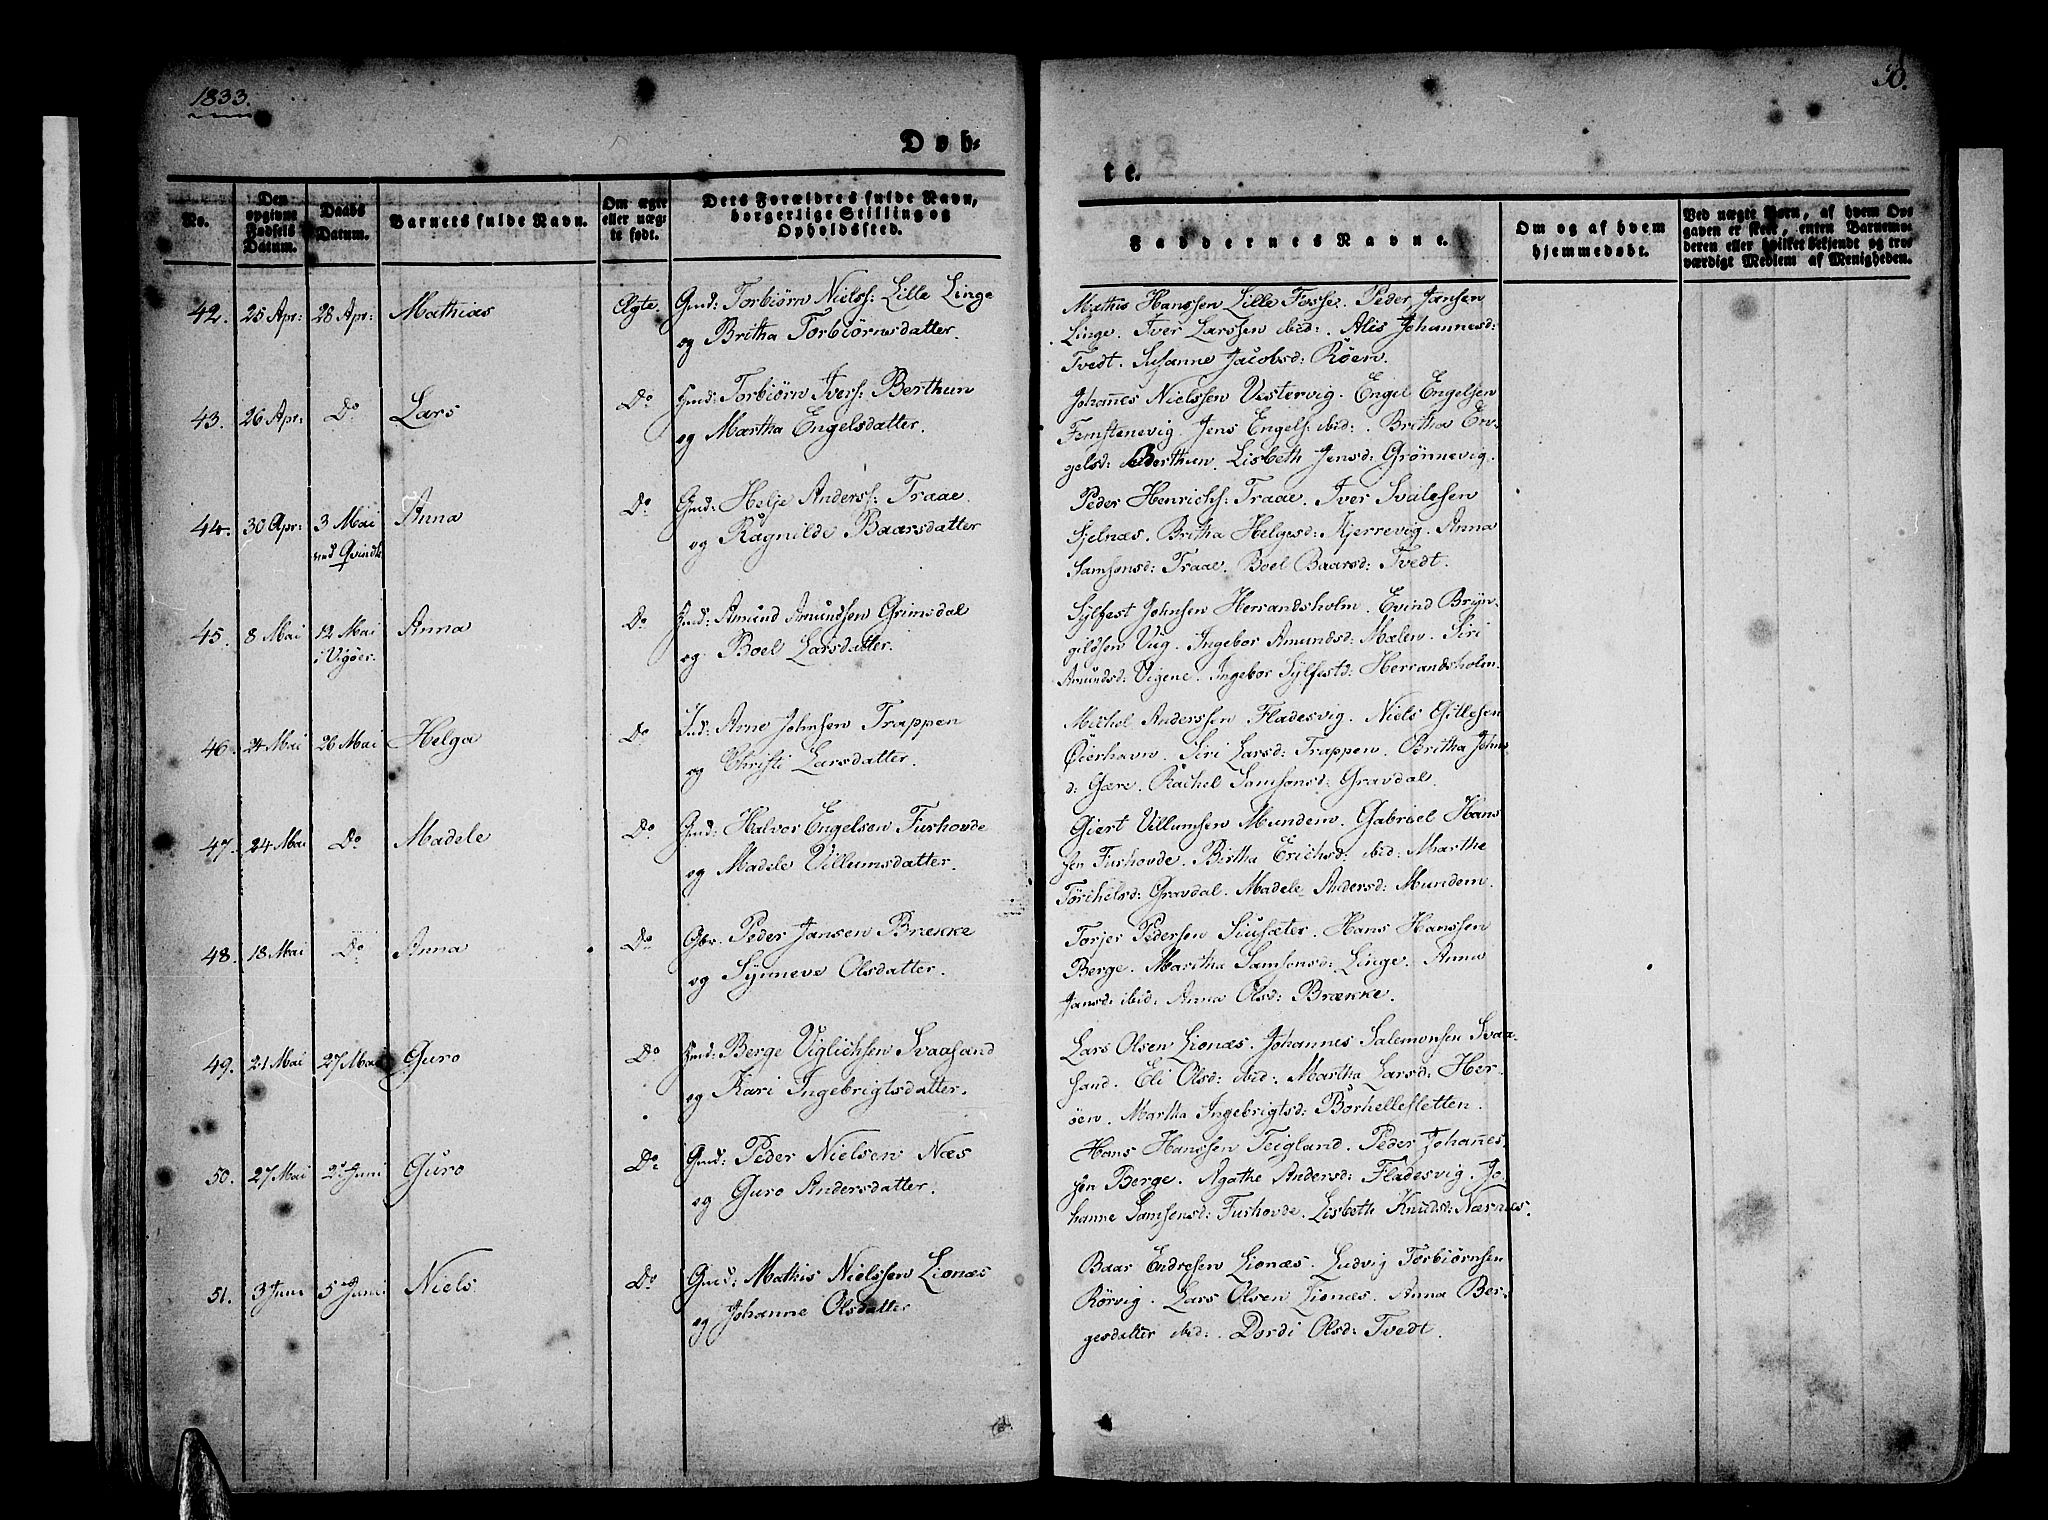 1833.
50.
Døb-
te.
No.
Den opgivne Fødsels Datum.
Daabs Datum.
Barnets fulde Navn.
Om ægte eller uægte født.
Dets Forældres fulde Navn, borgerlige Stilling og Opholdssted.
Faddernes Navne.
Om og af hvem hjemmedøbt.
Ved uægte Børn, af hvem Opgaven er skeet, enten Barnemoderen eller hvilket bekjendt og troværdigt Medlem af Menigheden.
42. 25 Apr: 28 Apr: Mathias Ægte Gmd: Torbiørn Nielss: Lille Linge
og Britha Torbiørnsdatter.
Mathis Hanssen Lille Fosse. Peder Jansen
Linge. Iver Larssen ibid:. Alis Johannesd:
Tvedt. Susanne Jacobsd: Røen.
43. 26 Apr: Do Lars Do Hmd: Torbiørn Ivers: Berthun
og Martha Engelsdatter.
Johañes Nielssen Vestervig. Engel Engelsen
Femstenevig. Jens Engels: ibid:. Britha En-
gelsd: Berthun. Lisbeth Jensd: Grønnevig.
44. 30 Apr: 3 Mai Anna Do Gmd: Helje Anderss: Traae.
ved Qvindh
og Ragnilde Baarsdatter
Peder Henrichs: Traae. Iver Svalesen
Fjelnæs. Britha Helgesd: Kjerrevig. Anna
Samsonsd: Traae. Boel Baarsd: Tvedt.
45. 8 Mai 12 Mai Anna Do Hmd: Amund Amundsen Grimsdal
i Vigøer.
og Boel Larsdatter.
Sylfest Johnsen Herrandsholm. Evind Bryn-
gildsen Vig. Ingebor Amundsd: Mælen. Siri
Amundsd: Vigene. Ingebor Sylfestd: Herrandsholm.
46. 24 Mai 26 Mai Helga Do Ind: Arne Johnsen Trappen
og Christi Larsdatter.
Michel Anderssen Fladesvig. Niels Gitlesen
Øierhavn. Siri Larsd: Trappen. Britha Johns
d: Gære. Rachel Samsonsd: Gravdal.
47. 24 Mai Do Madele Do Gmd: Halvor Engelsen Furhovde
og Madele Villumsdatter.
Giert Villumsen Mundem. Gabriel Hans
sen Furhovde. Britha Erichsd: ibid: Marthe
Torchelsd: Gravdal. Madele Andersd: Mundem.
48. 18 Mai Do Anna Do Gbr. Peder Jansen Brække
og Synneve Olsdatter.
Torjer Pedersen Siusæter. Hans Hanssen
Berge. Maritha Samsonsd: Linge. Anna
Jansd: ibid: Anna Olsd: Brække.
49. 21 Mai 27 Mai Guro Do Hmd: Berge Viglichsen Svaasand
og Kari Ingebrigtsdatter.
Lars Olsen Lionæs. Johannes Salemonsen Svaa-
sand. Eli Olsd: ibid: Martha Larsd: Her-
øen. Martha Ingebrigtsd: Borhellesletten.
50. 27 Mai 2 Juni Guro Do Gmd: Peder Nielsen Næs
og Guro Andersdatter.
Hans Hanssen Teigland. Peder Johañes
sen Berge. Agathe Andersd: Fladesvig. Jo-
hanne Samsensd: Furhovde. Lisbeth Knudsd: Nærnes.
51. 3 Juni 5 Juni Niels. Do Gmd: Mathis Nielssen Lionæs
og Johanne Olsdatter
Baar Endresen Lionæs. Ludvig Torbiørnsen
Rørvig. Lars Olsen Lionæs. Anna Ber-
gesdatter ibid:. Dordi Olsd: Tvedt.